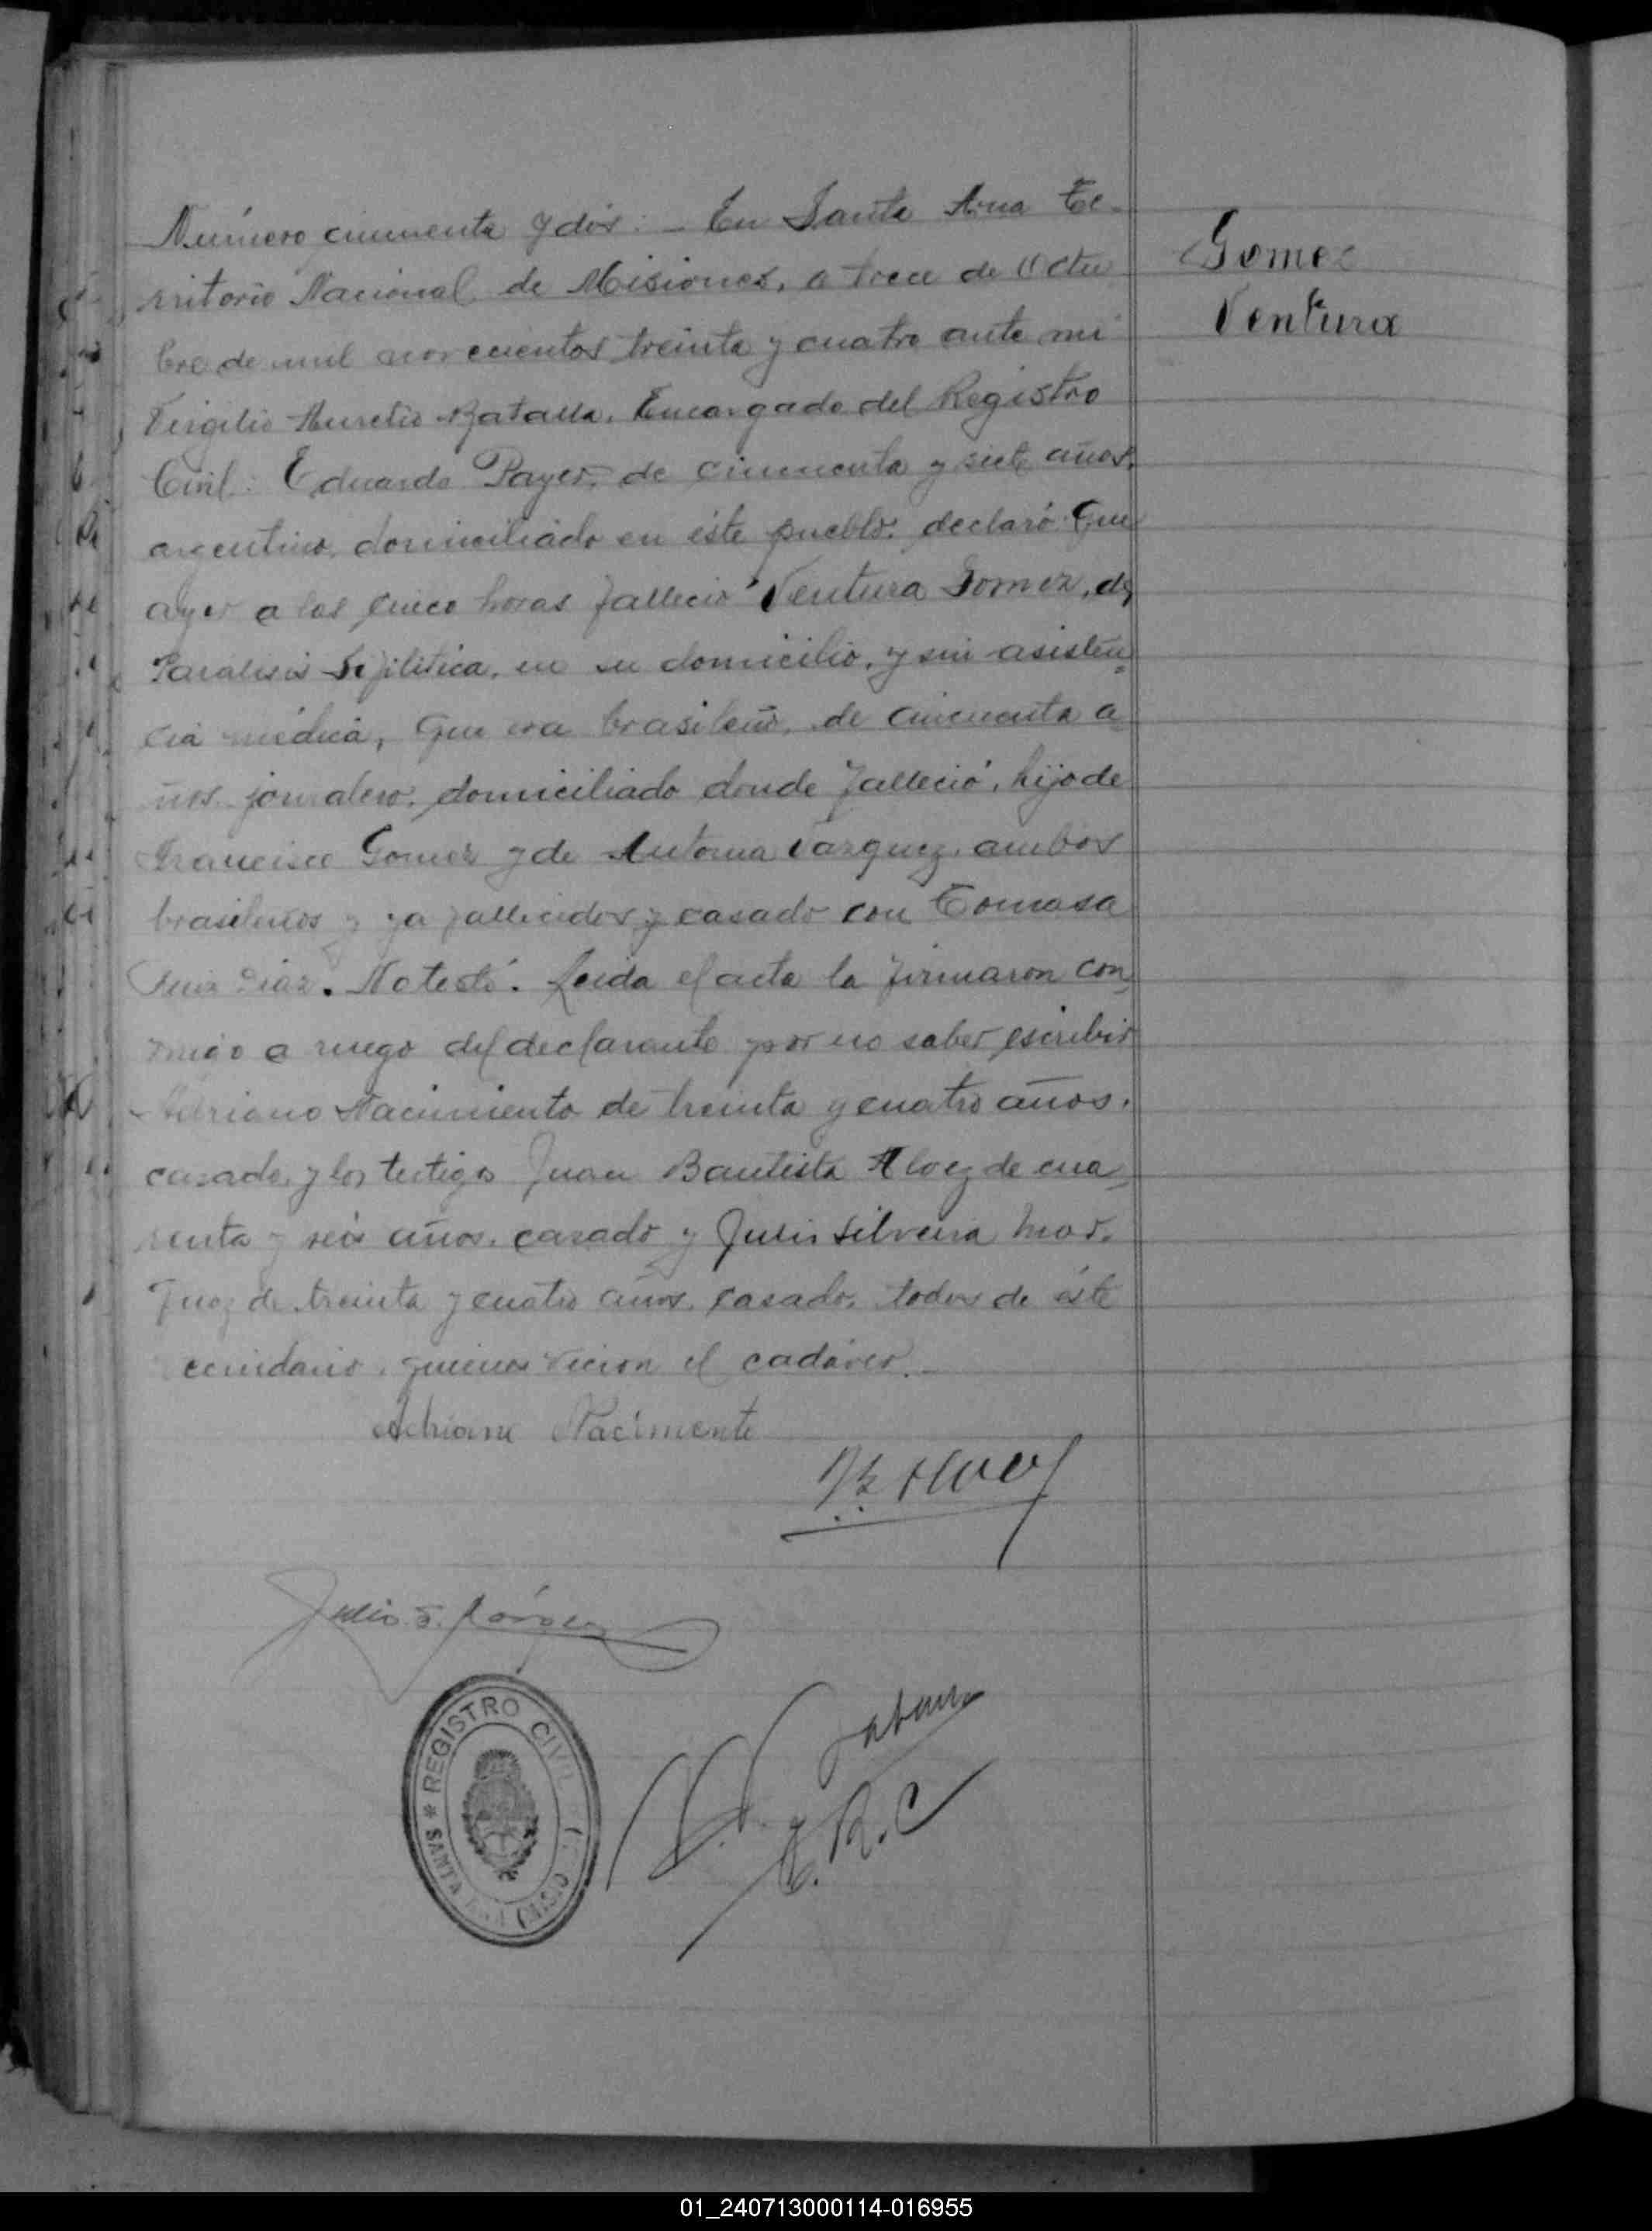 Número cincuenta y dós: - En Santa Ana Te-
rritorio Nacional de Misiones, a trece de Octu
bre de mil novecientos treinta y cuatro ante mi
Virgilio Aurelio Batalla, Encargado del Registro
Civil: Eduardo Payer, de cincuenta y siete años,
argentino, domiciliado en éste pueblo, declaró: Que
ayer a las cinco horas falleció Ventura Gomez, de
Paralisis Sifilitica, en su domicilio, y sin asisten=
cia médica, Que era brasileño, de cincuenta a=
ños, jornalero, domiciliado donde falleció, hijo de
Francisco Gomez y de Antonia Vazquez, ambos
brasileños y ya fallecidos y casado con Tomasa
Ruiz Diaz. No testó. Leida el acta la firmaron con=
migo a ruego del declarante por no saber escribir
Adriano Nacimiento de treinta y cuatro años,
casado, y los testigos Juan Bautista Aloez de cua=
renta y seis años, casado y Julio Silveira Mar-
quez de treinta y cuatro años, casado, todos de éste
vecindario, quienes vieron el cadáver.-
Adriano Nacimento
Julio S. Márquez
E. R. C
REGISTRO CIVIL
SANTA
Gomez
Ventura
01_240713000114-016955